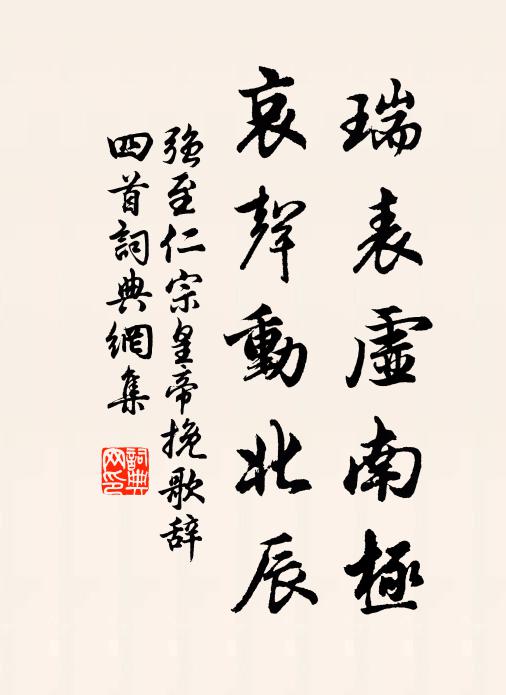 瑞表虛南極
哀聲動北辰
強至仁宗皇帝挽歌辞
四首詞典網集
詞典
网印